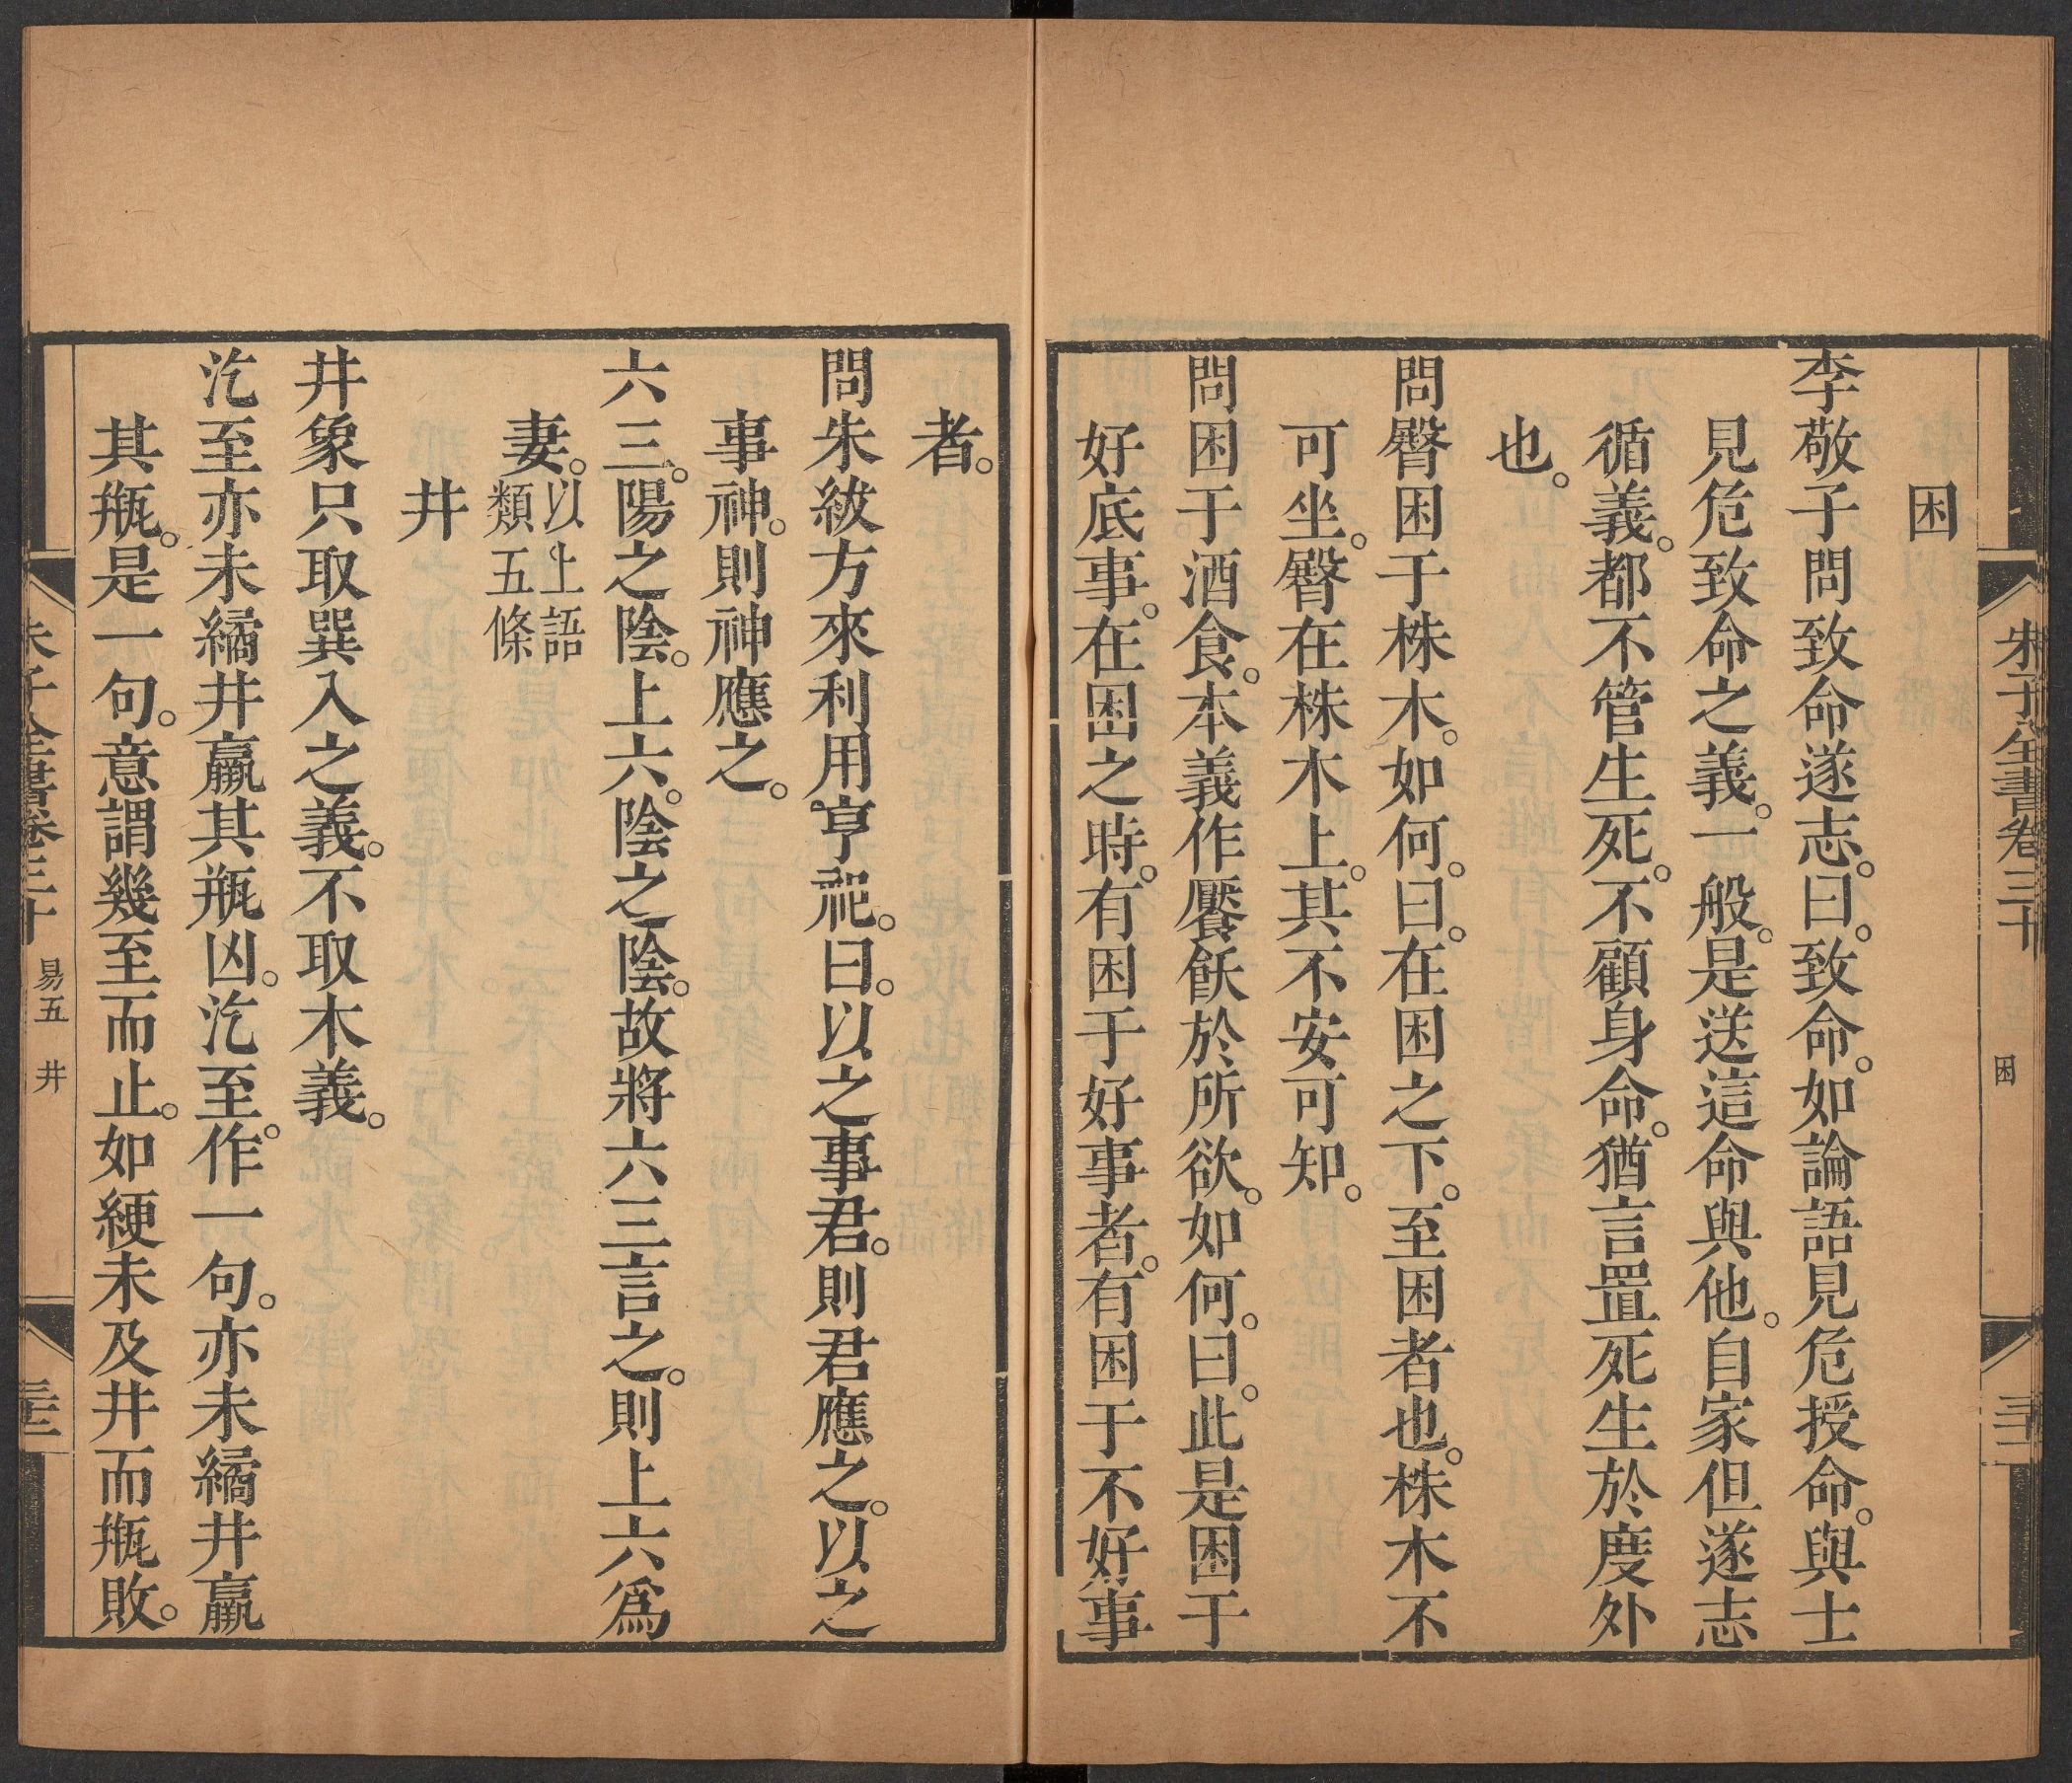 朱子全書卷三十 困 三十二
困
李敬子問致命遂志。曰。致命。如論語見危授命。與士
見危致命之義。一般。是送這命與他。自家但遂志
循義。都不管生死。不顧身命。猶言置死生於度外
也。
問臀困于株木。如何。曰。在困之下。至困者也。株木不
可坐。臀在株木上。其不安可知。
問困于酒食。本義作饜飫於所欲。如何。曰。此是困于
好底事。在困之時。有困于好事者。有困于不好事
者。
問朱紱方來利用亨祀。曰。以之事君。則君應之。以之
事神。則神應之。
六三。陽之陰。上六。陰之陰。故將六三言之。則上六爲
妻。以上語類五條
井
井象只取巽入之義。不取木義。
汔至亦未繘井羸其瓶凶。汔至。作一句。亦未繘井羸
其瓶。是一句。意謂幾至而止。如綆未及井而瓶敗。
朱子全書卷三十 易五 井 三十三